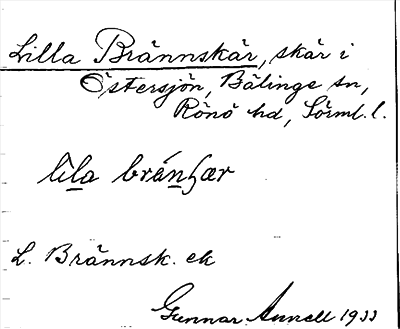 Lilla Brännskär, skär i
Östersjön, Bälinge sn,
Rönö hd, Sörml. l.
lila brän꜀ær
L. Brännsk. ek
Gunnar Annell 1933